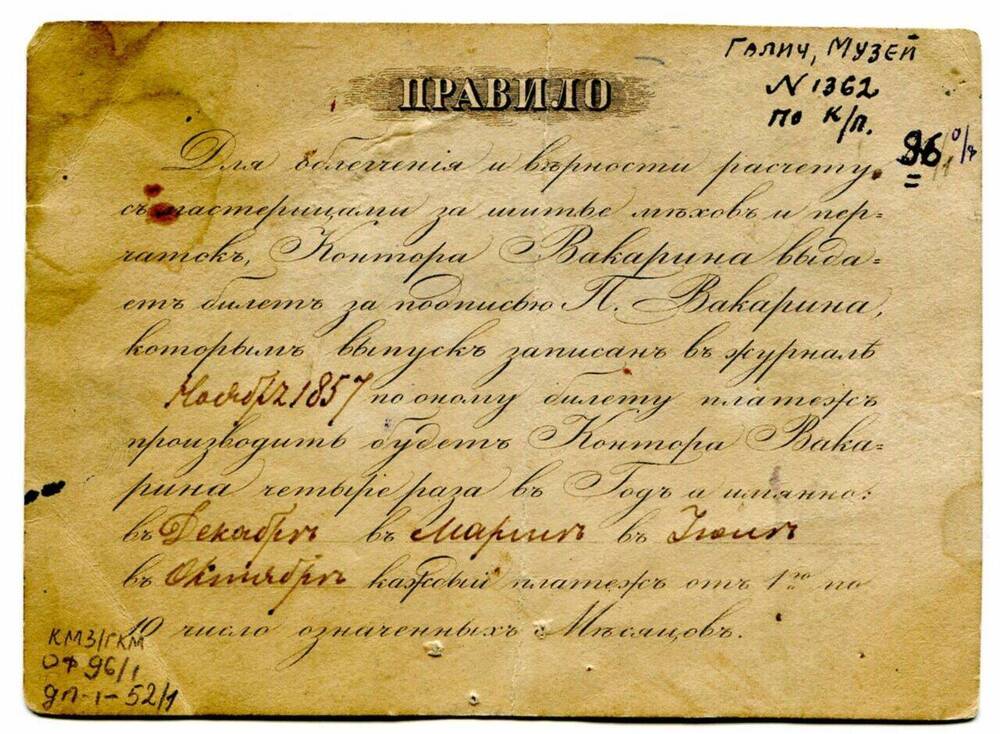 ПРАВИЛО
Галич, Музей
N 1362
по К/п.
96
Для облегченія и вѣрности расчету,
съ мастерицами за шитье мѣховъ и пер=
чатокъ, Контора Вакарина выда=
етъ билетъ за подписью П. Вакарина,
которымъ выпускъ записанъ въ журналѣ
Ноября 1857 по оному билету платежъ
производить будетъ Контора Вака=
рина четыре раза въ Годъ а имянно:
въ Декабрѣ въ Мартѣ въ Іюнѣ
въ Октябрѣ каждый платежъ отъ 1го по
10 число означенныхъ Мѣсяцовъ.
КМЗ/ГКМ
ОФ 96/1
ДП-I-52/1